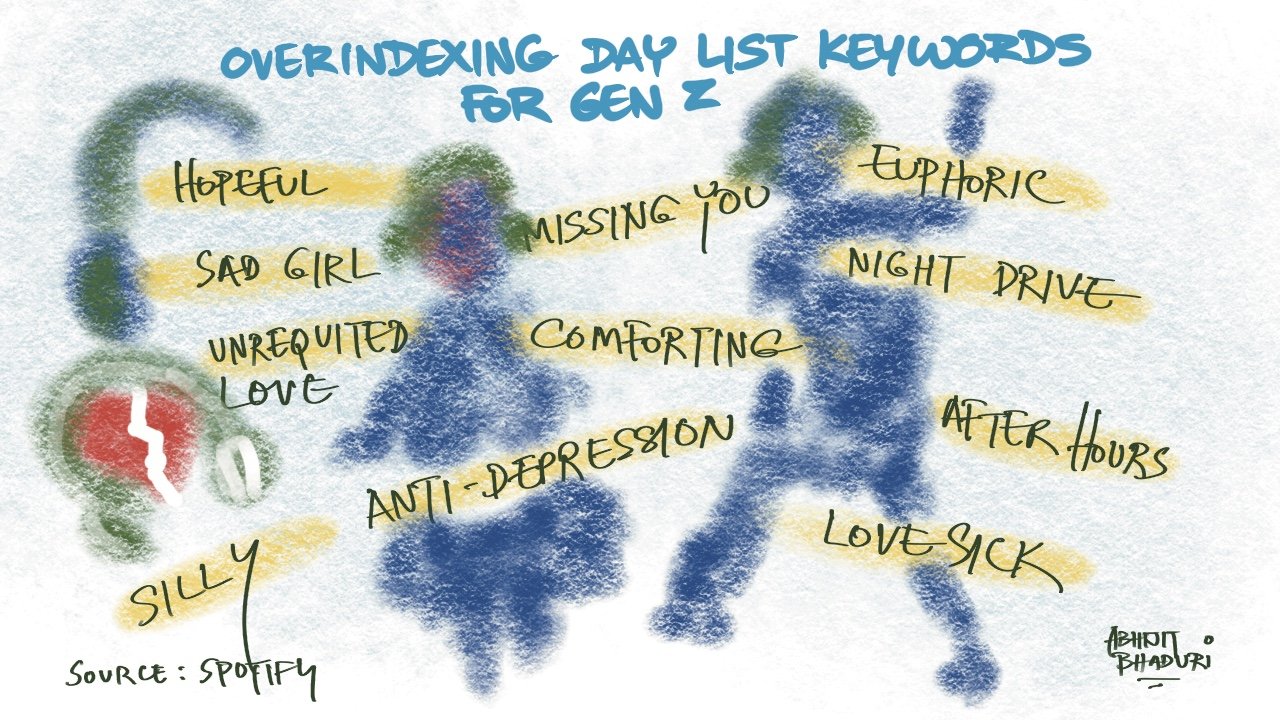 OVERINDEXING DAY LIST KEYWORDS
FOR GEN Z
HOPEFUL
SAD GIRL
UNREQUITED
LOVE
SILLY
MISSING YOU
COMFORTING
ANTI-DEPRESSION
EUPHORIC
NIGHT DRIVE
AFTER HOURS
LOVESICK
SOURCE: SPOTIFY
ABHIJIT
BHADURI